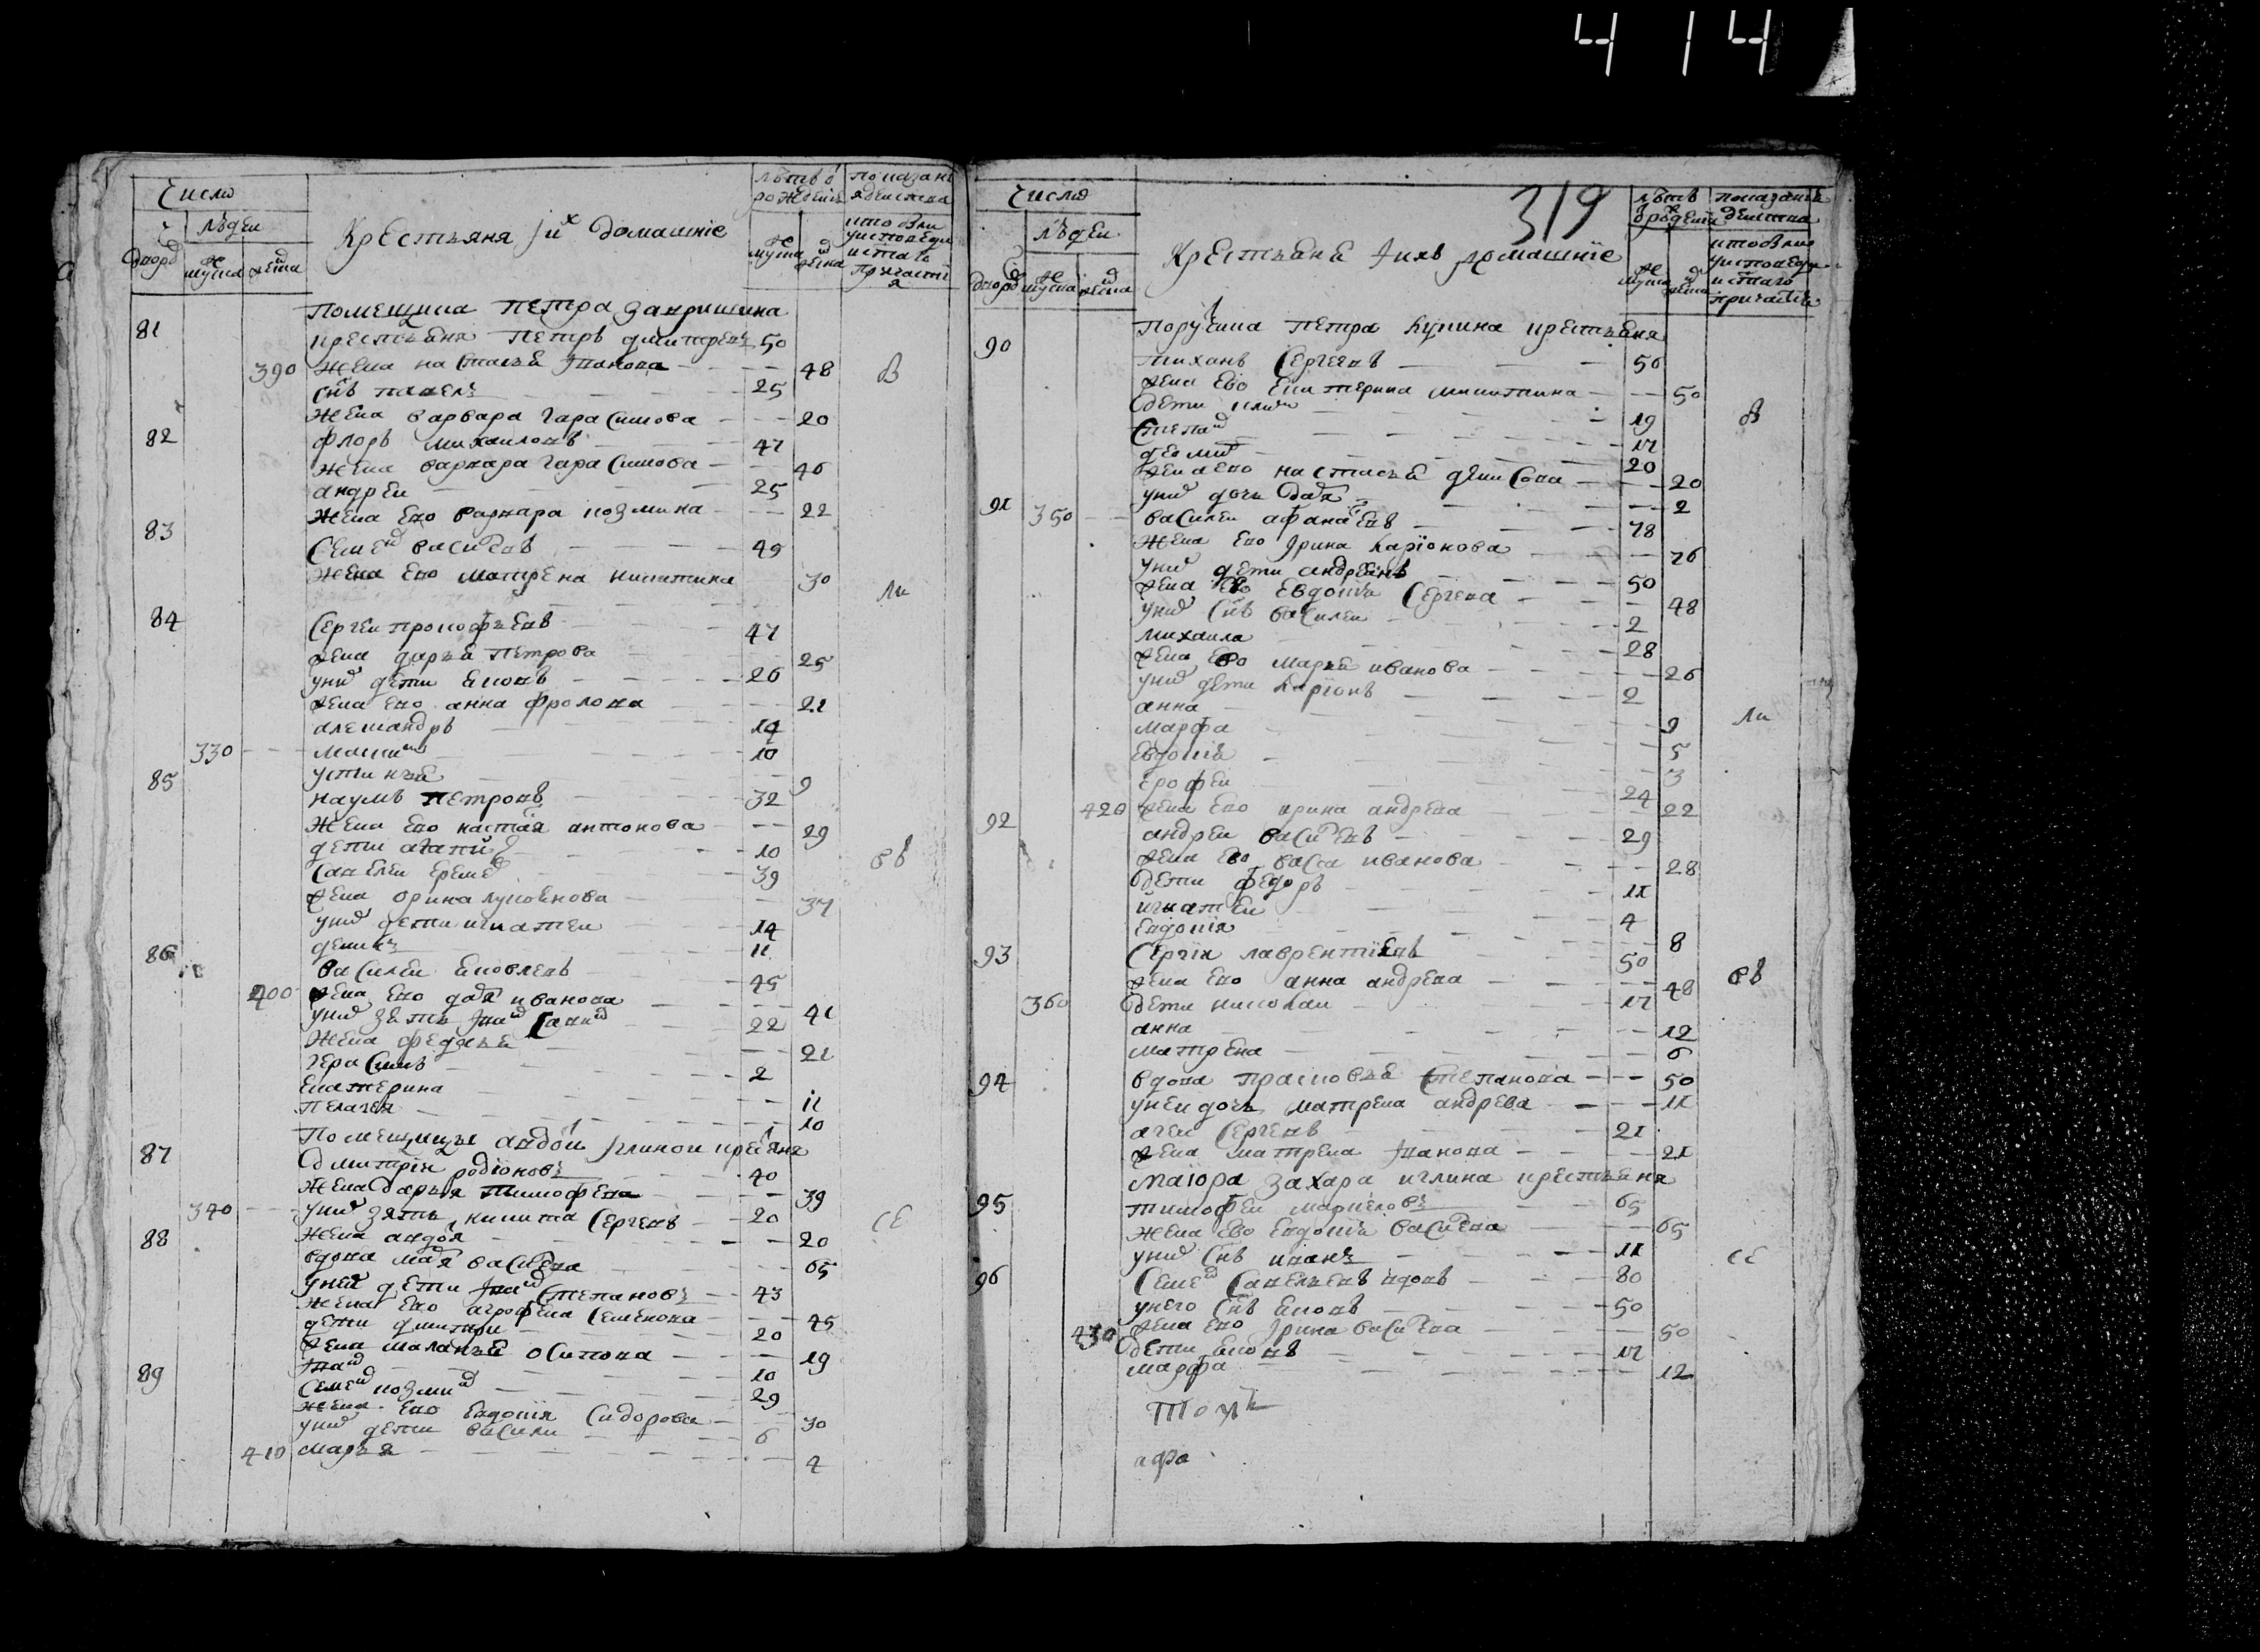 4 14
Число
людеи
дворо
муска
женска
Крестьяня и их домашние
лътъ ѿ рождения
муска
женска
показание действа
кто был у исповеди и стаго причастия
помещика петра
81 крестьяня петръ дмитреевъ 50
390 жена настасья иванова 48 в
снъ павелъ 25
жена варвара гарасимова 20
82 флоръ михаиловъ 47
жена варвара гарасимова 46
андреи 25
жена ево варвара козмина 22
83 семенъ василевъ 49
жена ево матрена никитина 30
ли
84 сергеи прокофьевъ 47
жена дарья петрова 25
у них дети яковъ 26
жена ево анна фролова 21
алеѯандръ 14
330 маѯимъ 10
устинья 9
85 наумъ петровъ 32
жена ево настасия антонова 29
дети агапии 10
савелеи еремеевъ 39 ев
жена орина лукоянова 37
у них дети игнатеи 14
денисъ 11
86 василеи яковлевъ 45
400 жена ево дария иванова 41
у них зять иванъ савинъ 22
жена федосья 21
герасимъ 2
екатерина 11
пелагея 10
помещицы авдотьи углинои крестьяня
87 дмитрии родионовъ 40
жена дарья тимофеева 39
340 у них зять никита сергеевъ 20 се
жена авдотья 20
88 вдова мария василева 65
у неи дети иванъ степановъ 43
жена ево агрофена семенова 45
дети дмитри 20
жена маланья осипова 19
иванъ 10
89 семенъ козминъ 29
жена ево евдокия сидорова 30
у них дети васили 6
410 марья 4
319
Число
людеи
дворо
муска
женска
Крестьяне и ихъ домашние
лътъ ѿ рождени
муска
женска
показание действа
кто был у исповеди и стаго причастия
поручика петра кулина крестьяня
90 тиханъ сергеевъ 50
жена ево екатерина никитина 50
дети клим 19 в
степан 17
демид 20
жена ево настасья денисова 20
у них дочь дария 2
91 350 василеи афанасевъ 78
жена ево ирина ларионова 76
у них дети андреянъ 50
жена ево евдокия сергева 48
у них снъ василеи 2
михаила 28
жена ево марья иванова 26
у них дети ларионъ 2
анна 9 ли
марфа 5
евдокия 3
ерофеи 24
420 жена ево ирина андрева 22
92 андреи василевъ 29
жена ево васса иванова 28
дети федоръ 11
игнатеи 4
евдокия 8
93 сергии лаврентиевъ 50 ев
жена ево анна андрева 48
360 дети николаи 17
анна 12
матрена 6
94 вдова прасковья степанова 50
у неи дочь матрена андрева 11
агеи сергевъ 21
жена матрена иванова 21
маиора захара иглина крестьяня
95 тимофеи маркеловъ 65
жена ево евдокия василева 65
у них снъ иванъ 11 се
96 семенъ савельевъ вдовъ 80
у него снъ яковъ 50
430 жена ево ирина василева 50
дети яковъ 17
марфа 12
афо